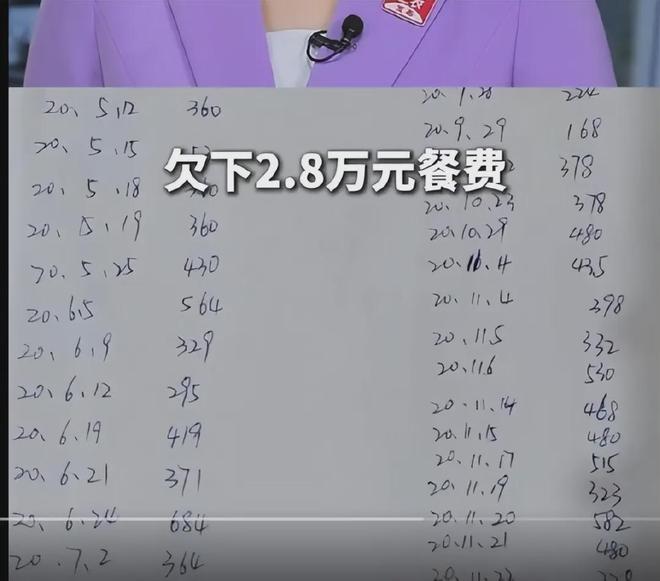 20、5、12 360
20、5、15
欠下2.8万元餐费
20、5、18
20、5、19 360
20、5、25 430
20、6、5 564
20、6、9 329
20、6、12 295
20、6、19 419
20、6、21 371
20、6、24 684
20、7、2 364
20、9、28 224
20、9、29 168
378
20、10、23 378
20、10、29 480
20、11、4 435
20、11、4 398
20、11、5 332
20、11、6 530
20、11、14 468
20、11、15 480
20、11、17 515
20、11、19 323
20、11、20 582
20、11、21 480
20、11、22